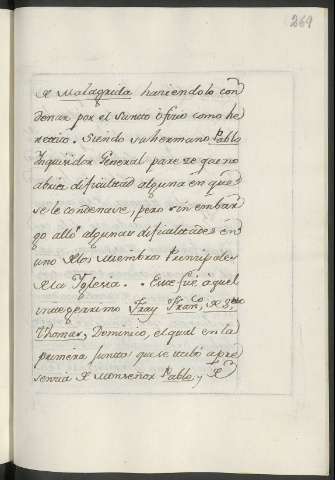 269
de Malagrida haciendolo con
denar por el Santo oficio como he
retico. Siendo su hermano Pablo
Inquisidor General parece que no
abria dificultad alguna en que
se le condenase, pero sin embar
go alló algunas dificultades en
uno de los miembros Principales
de la Iglesia. Este fué aquel
integerrimo Fray Fran.co de S.to
Thomas, Dominico, el qual en la
primera Junta que se tubo à pre
sencia de Monseñor Pablo, y de